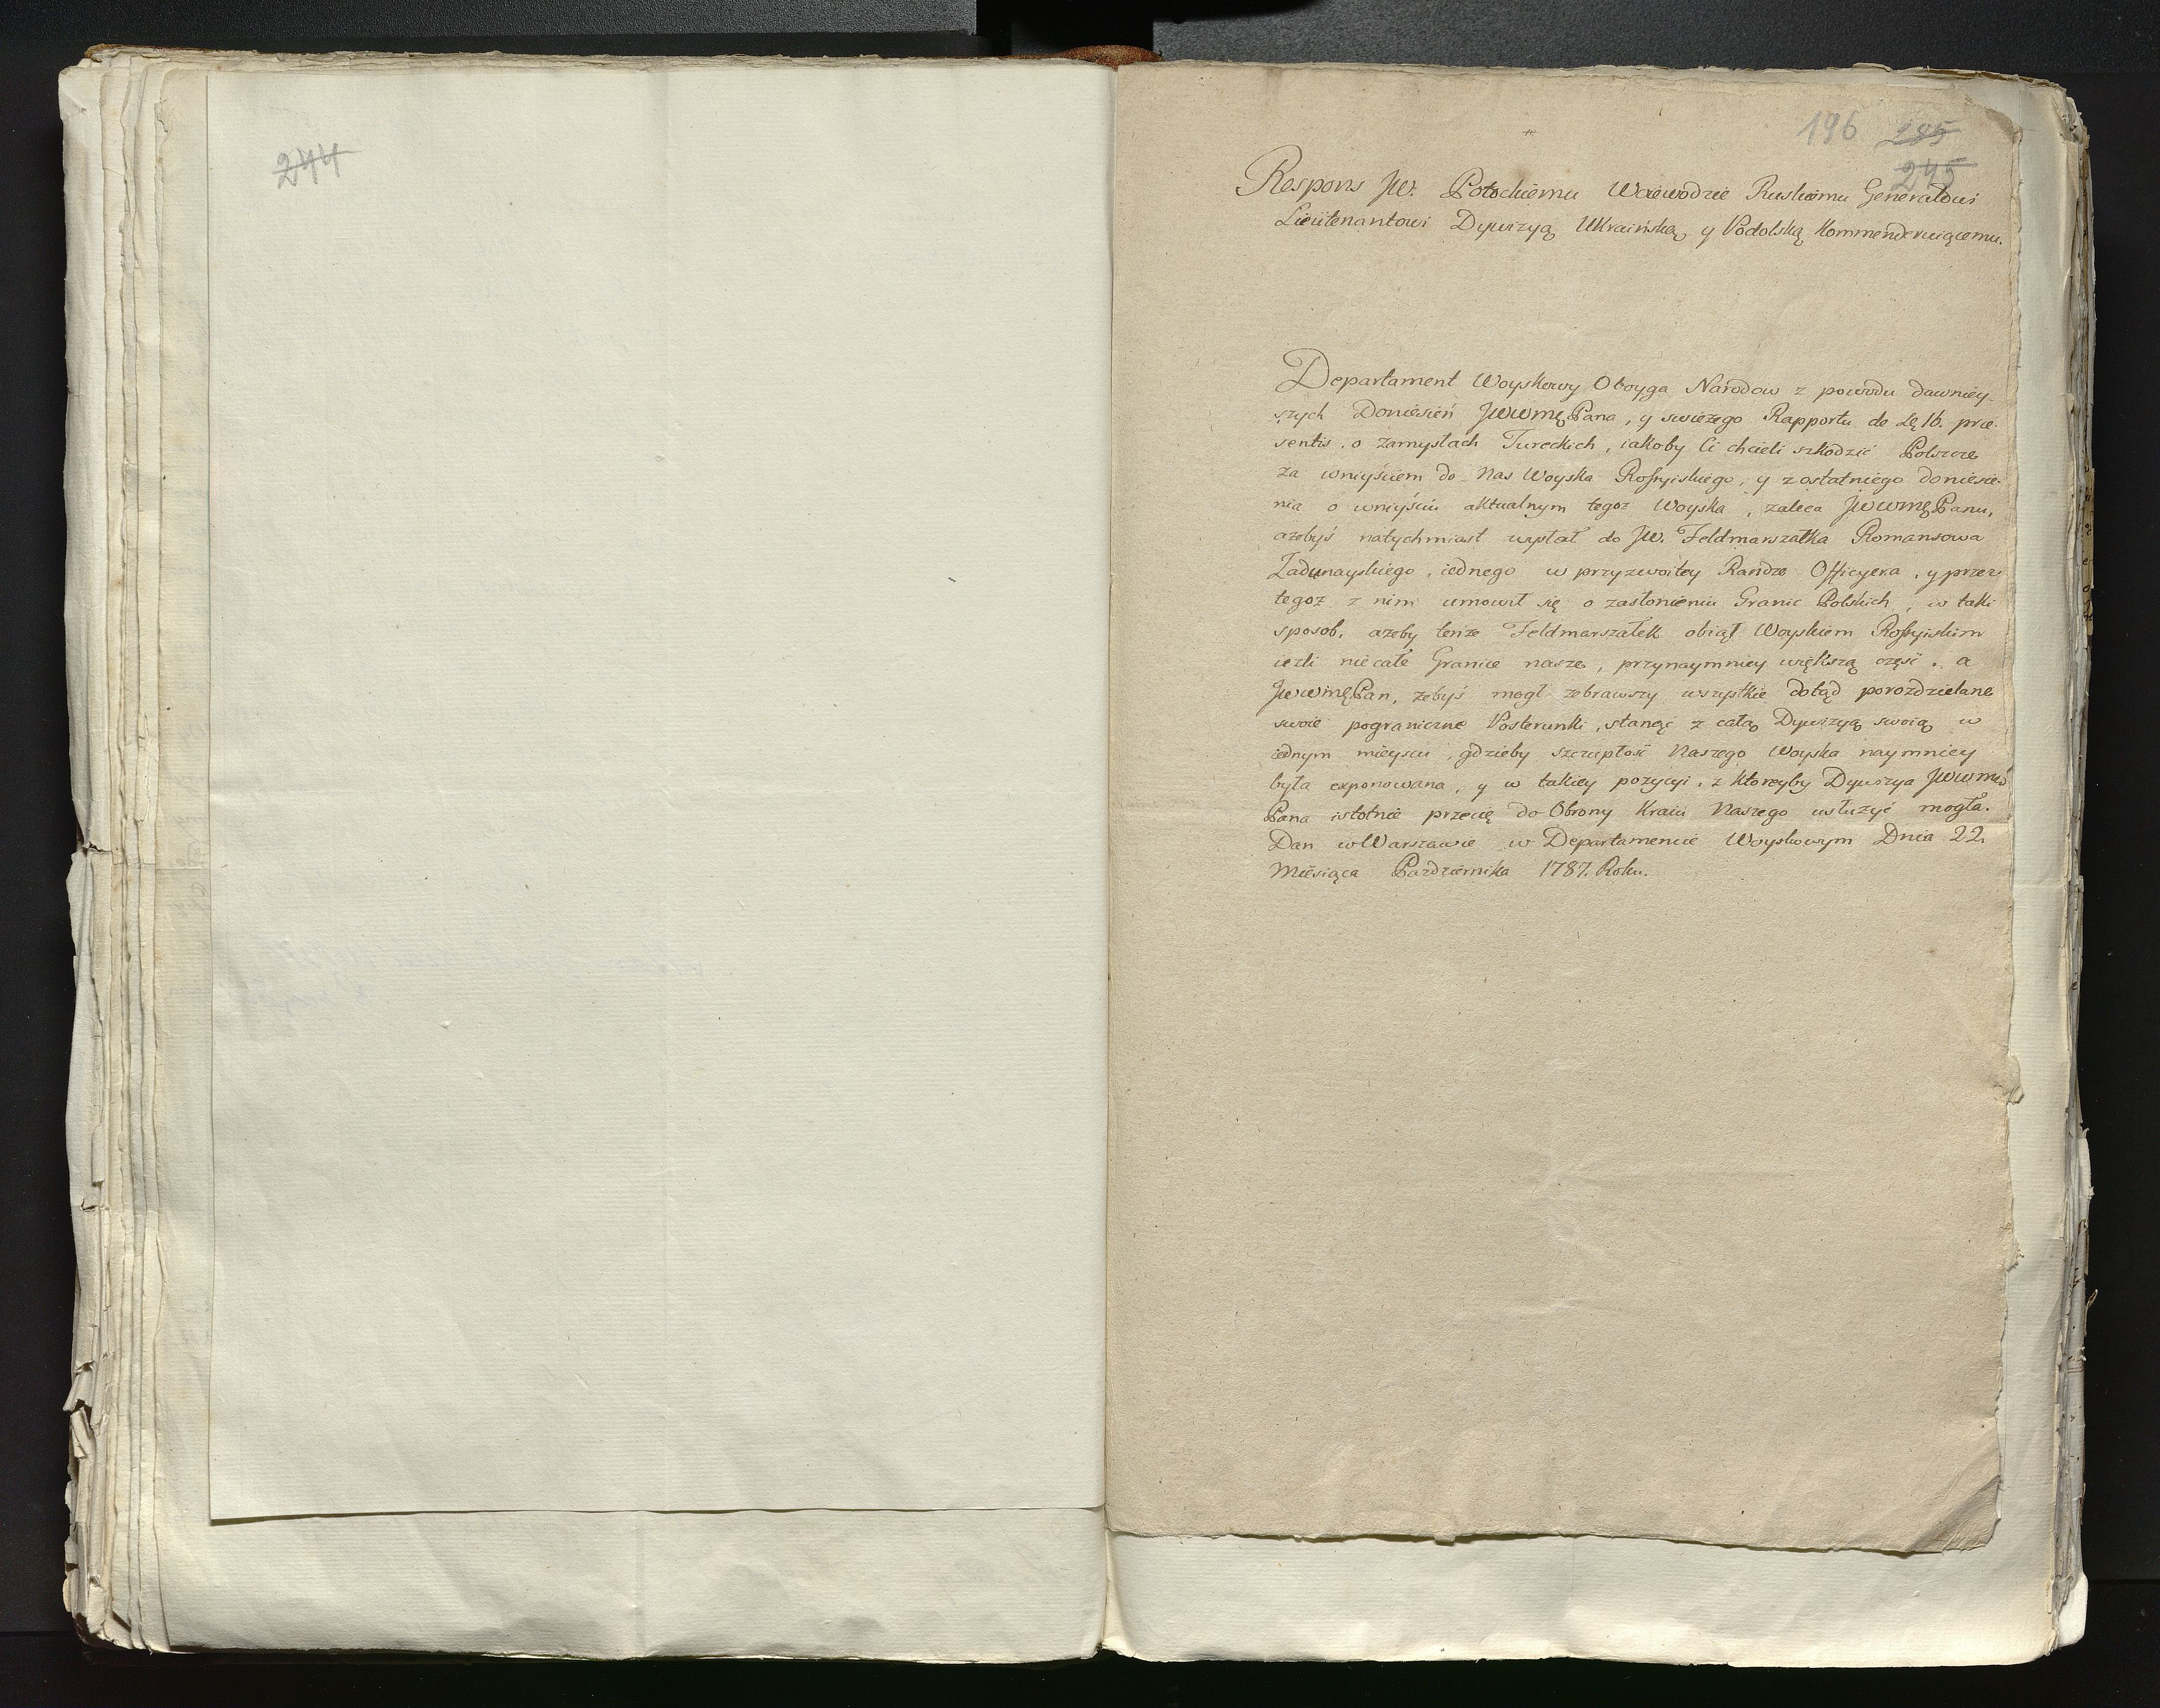 244
196 285
245
Respons JW. Potockiemu Woiewodzie Ruskiemu Generałowi
Lieutenantowi Dywizyą Ukraińską y Podolską Kommenderuiącemu.
Departament Woyskowy Oboyga Narodow z powodu dawniey-
szych Doniesień JWWMę Pana, y swieżego Rapportu de 16. præ-
sentis. o zamysłach Tureckich, iakoby Ci chcieli szkodzić Polszcze
za wniyściem do Nas Woyska Rossyiskiego, y z ostatniego doniesie-
nia o wniyściu aktualnym tegoż Woyska, zaleca JWWMę Panu,
ażebyś natychmiast wysłał do JW. Feldmarszałka Romansowa
Zadunayskiego, iednego w przyzwoitey Randze Officyera, y przez
tegoż z nim umowił się o zasłonieniu Granic Polskich, w taki
sposob, ażeby tenże Feldmarszałek obiął Woyskiem Rossyiskim
ieżli nie całe Granice nasze, przynaymniey większą część. a
JWWMę Pan, żebyś mogł zebrawszy wszystkie dotąd porozdzielane
swoie pograniczne Posterunki, stanąć z całą Dywizyą swoią w
iednym mieyscu, gdzieby szczupłość Naszego Woyska naymniey
była exponowana, y w takiey pozycyi, z ktoreyby Dywizya JWWMę
Pana istotnie przecię do Obrony Kraiu Naszego usłużyć mogła.
Dan w Warszawie w Departamencie Woyskowym Dnia 22.
Miesiąca Pazdziernika 1787. Roku.